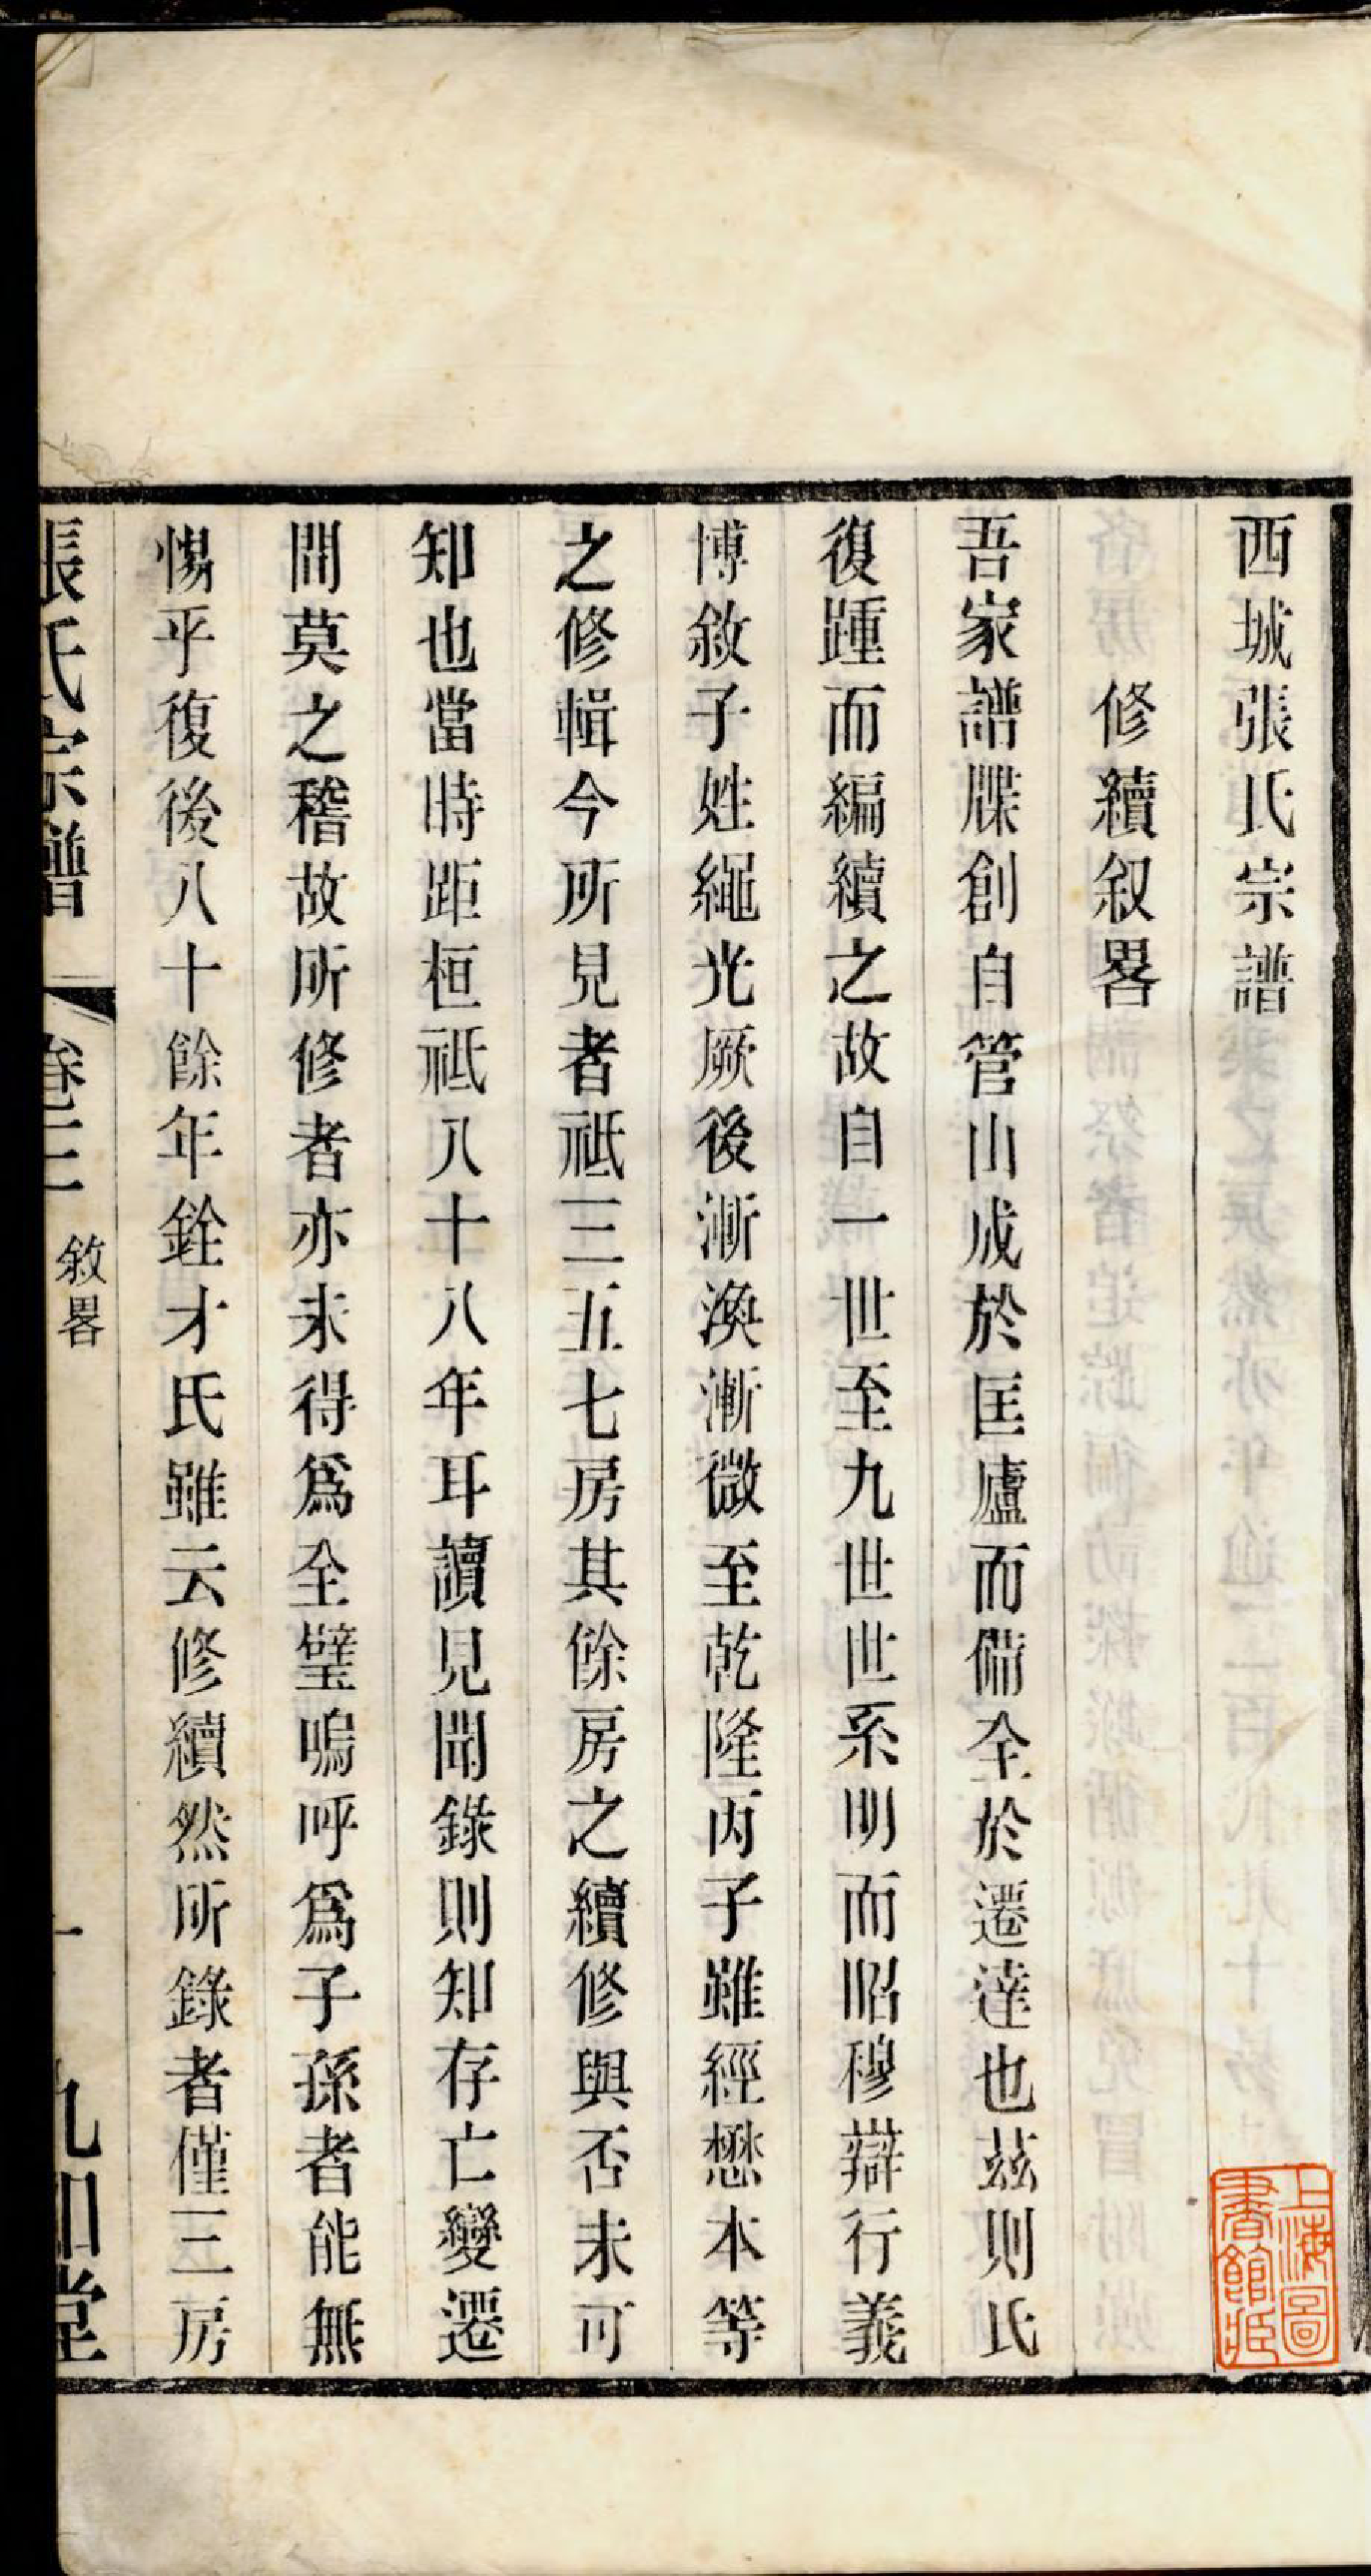 西城張氏宗譜
修續叙畧
吾家譜牒創自管山成於匡廬而備全於遷達也茲則氏
復踵而編續之故自一世至九世世系明而昭穆辯行義
博敘子姓繩光厥後漸渙漸微至乾隆丙子雖經懋本等
之修輯今所見者祗三五七房其餘房之續修與否未可
知也當時距桓祗八十八年耳讀見聞錄則知存亡變遷
間莫之稽故所修者亦未得爲全璧嗚呼爲子孫者能無
惕乎復後八十餘年銓才氏雖云修續然所錄者僅三房
張氏宗譜 卷二 敘畧 一 九和堂
上海圖書館藏